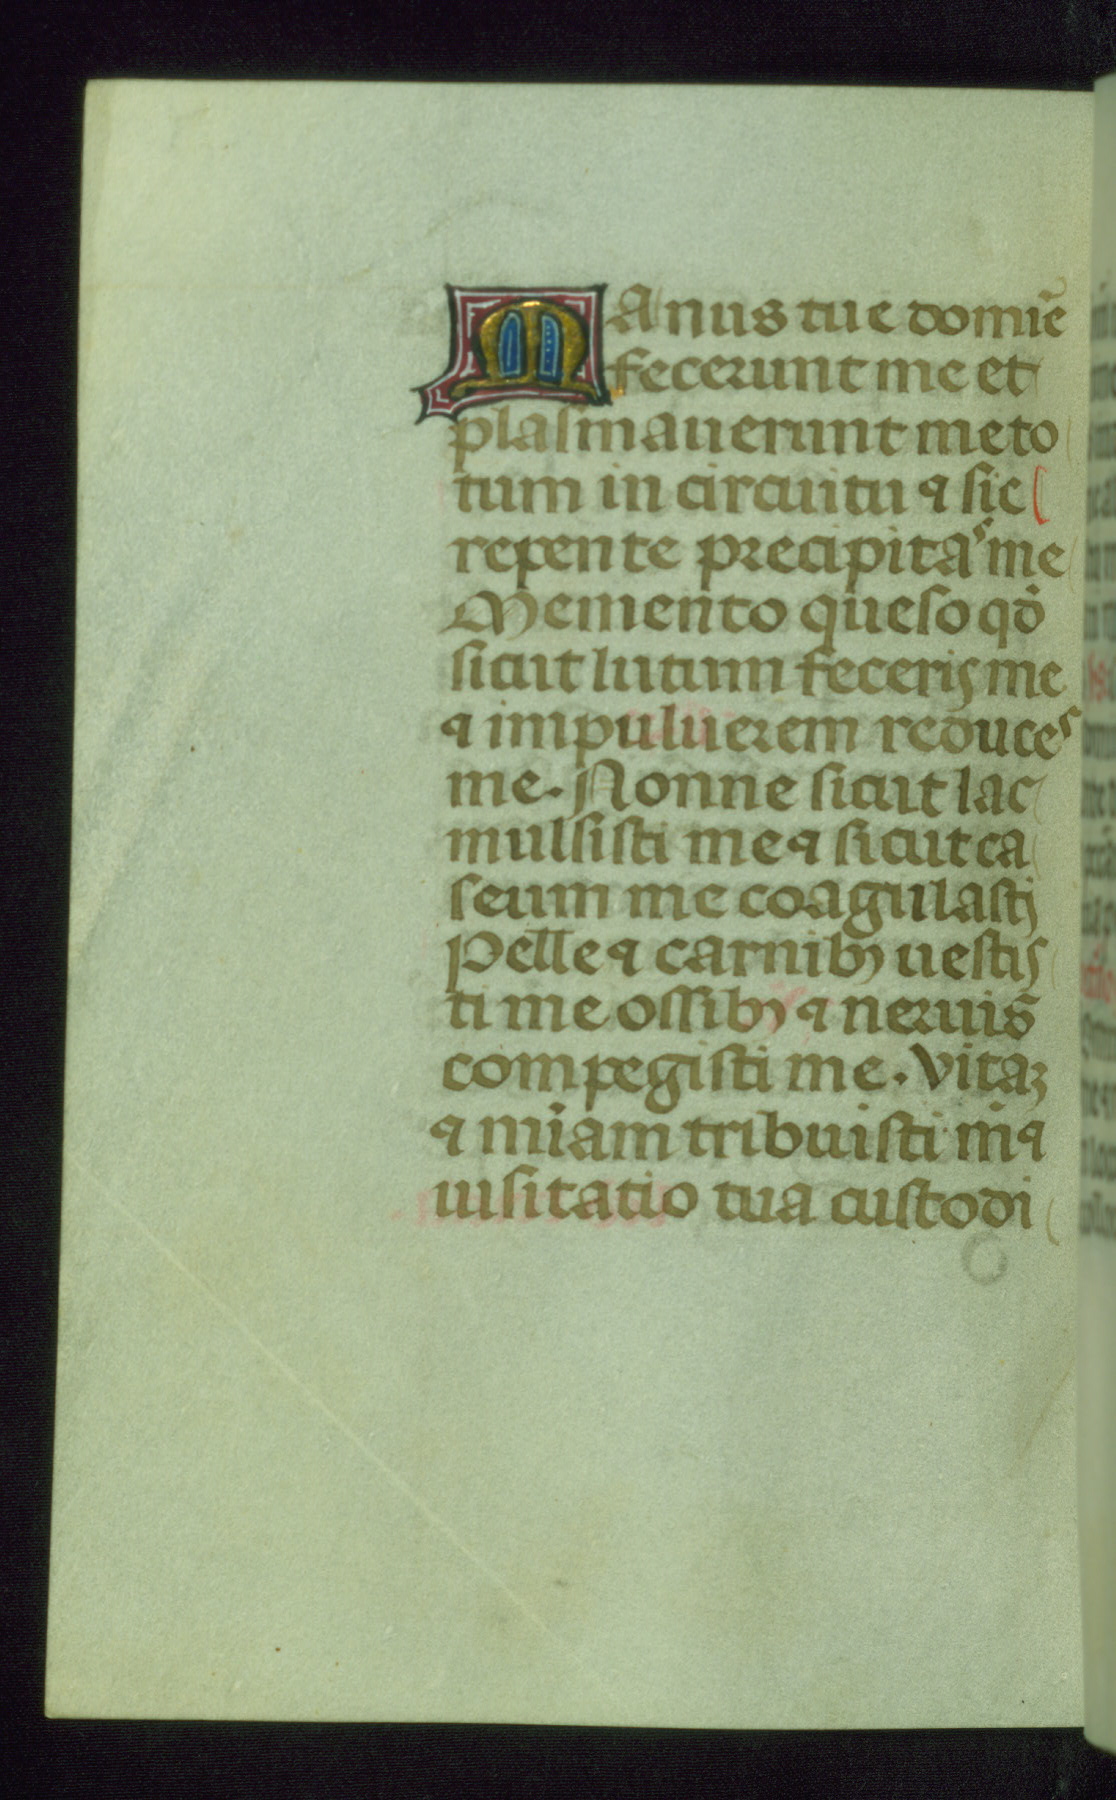 Manus tue domīe
fecerunt me et
plasmauerunt me to
tum in circuitu ⁊ sic
repente precipitaˢ me
Memento queso qđ
sicut lutum feceris me
⁊ impuluerem reduceˢ
me. Nonne sicut lac
mulsisti me ⁊ sicut ca
seum me coagulasti
Pelle ⁊ carnibꝫ uestis
ti me ossibꝫ ⁊ neruis
compegisti me. Vitaꝫ
⁊ mīam tribuisti m̄ ⁊
uisitatio tua custodi